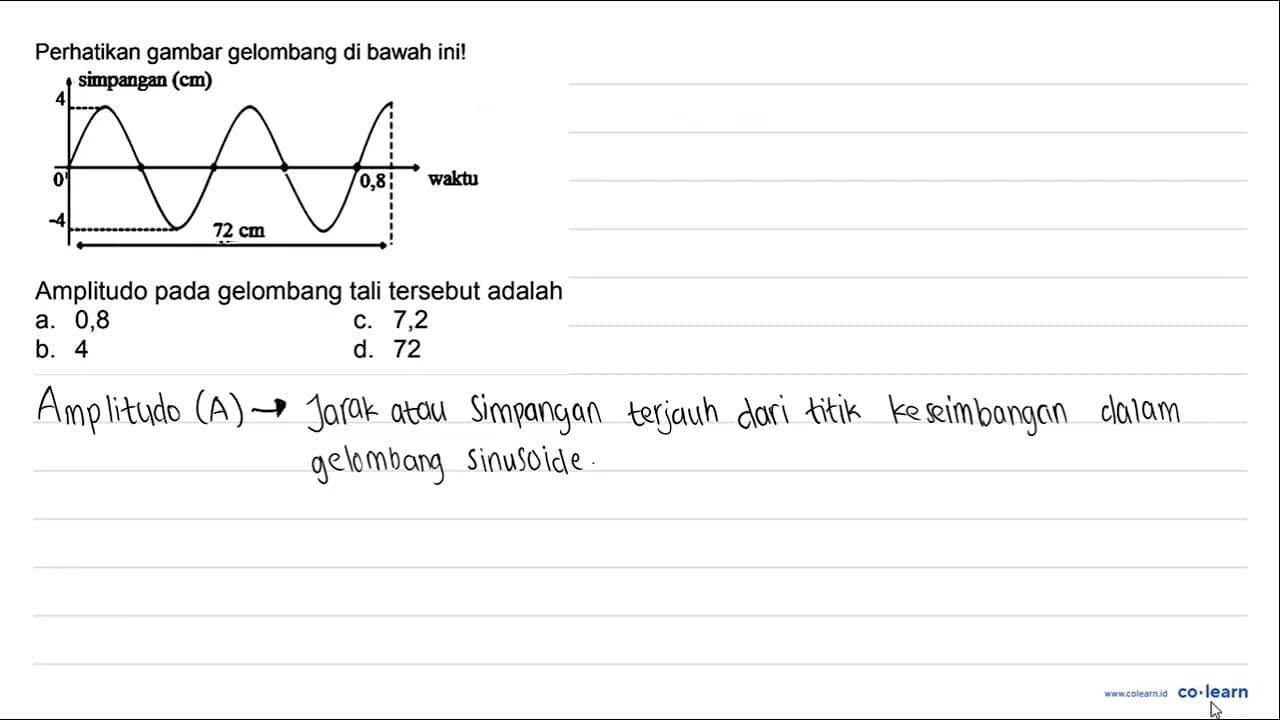 Perhatikan gambar gelombang di bawah ini!
simpangan (cm)
4
0
0,8
waktu
-4
72 cm
Amplitudo pada gelombang tali tersebut adalah
a. 0,8 c. 7,2
b. 4 d. 72
Amplitudo (A) → Jarak atau simpangan terjauh dari titik keseimbangan dalam
gelombang sinusoide.
www.colearn.id co·learn